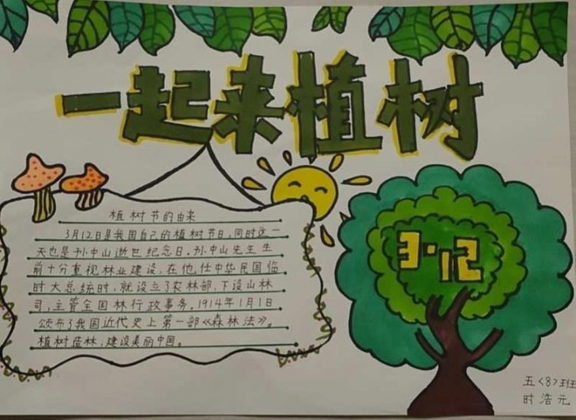 一起来植树
植树节的由来
3月12日是我国自己的植树节日,同时这一
天也是孙中山逝世纪念日,孙中山先生生
前十分重视林业建设,在他任中华民国临
时大总统时,就设立了农林部,下设山林
司,主管全国林行政事务,1914年1月1日
颁布了我国近代史上第一部《森林法》。
植树造林,建设美丽中国。
3·12
五〈8〉班
时浩元